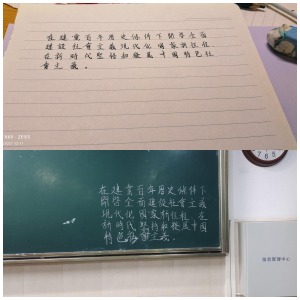 在建党百年历史条件下開啓全面
建設社會主義現代化國家新征程
在新時代堅持和發展中國特色社
會主義。
在建党百年历史條件下
開啓全面建設社會主義
現代化國家新征程 在
新時代堅持和發展中國
特色社會主義。
信息管理中心